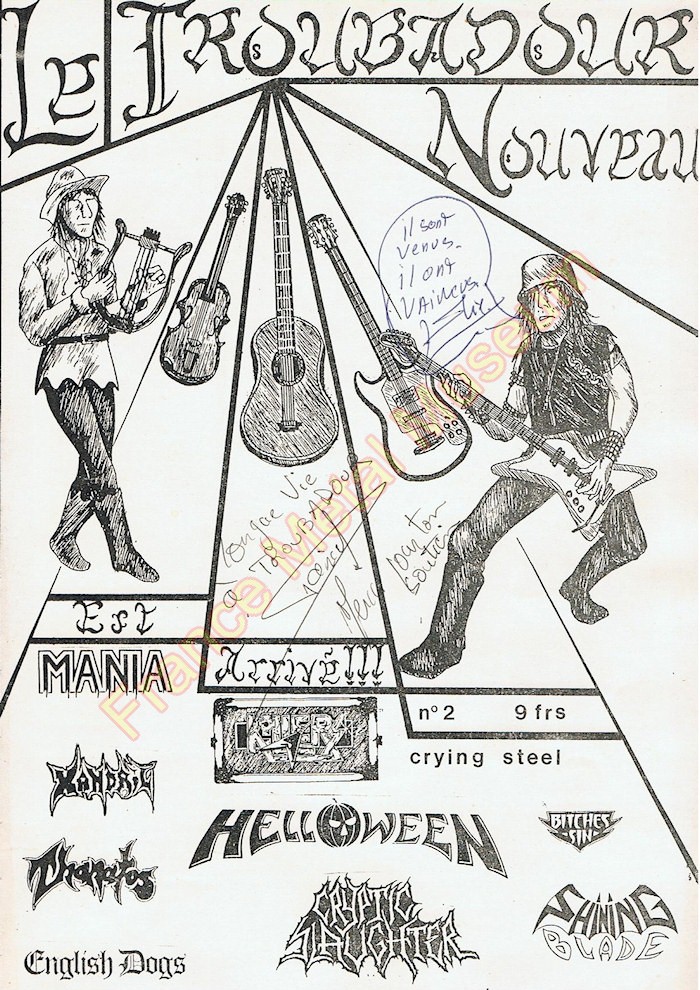 Le Troubadour
Nouveau
il sont
venus.
il ont
VAINCUS
Longue Vie
à TROUBADOUR
Merci pour ton
soutien
Est
Arrivé!!!
MANIA
KILLERS
n° 2 9 frs
crying steel
XANDRIL
HELLOWEEN
BITCHES
SIN
Thanatos
CRYPTIC
SLAUGHTER
SHINING
BLADE
English Dogs
France Metal Museum